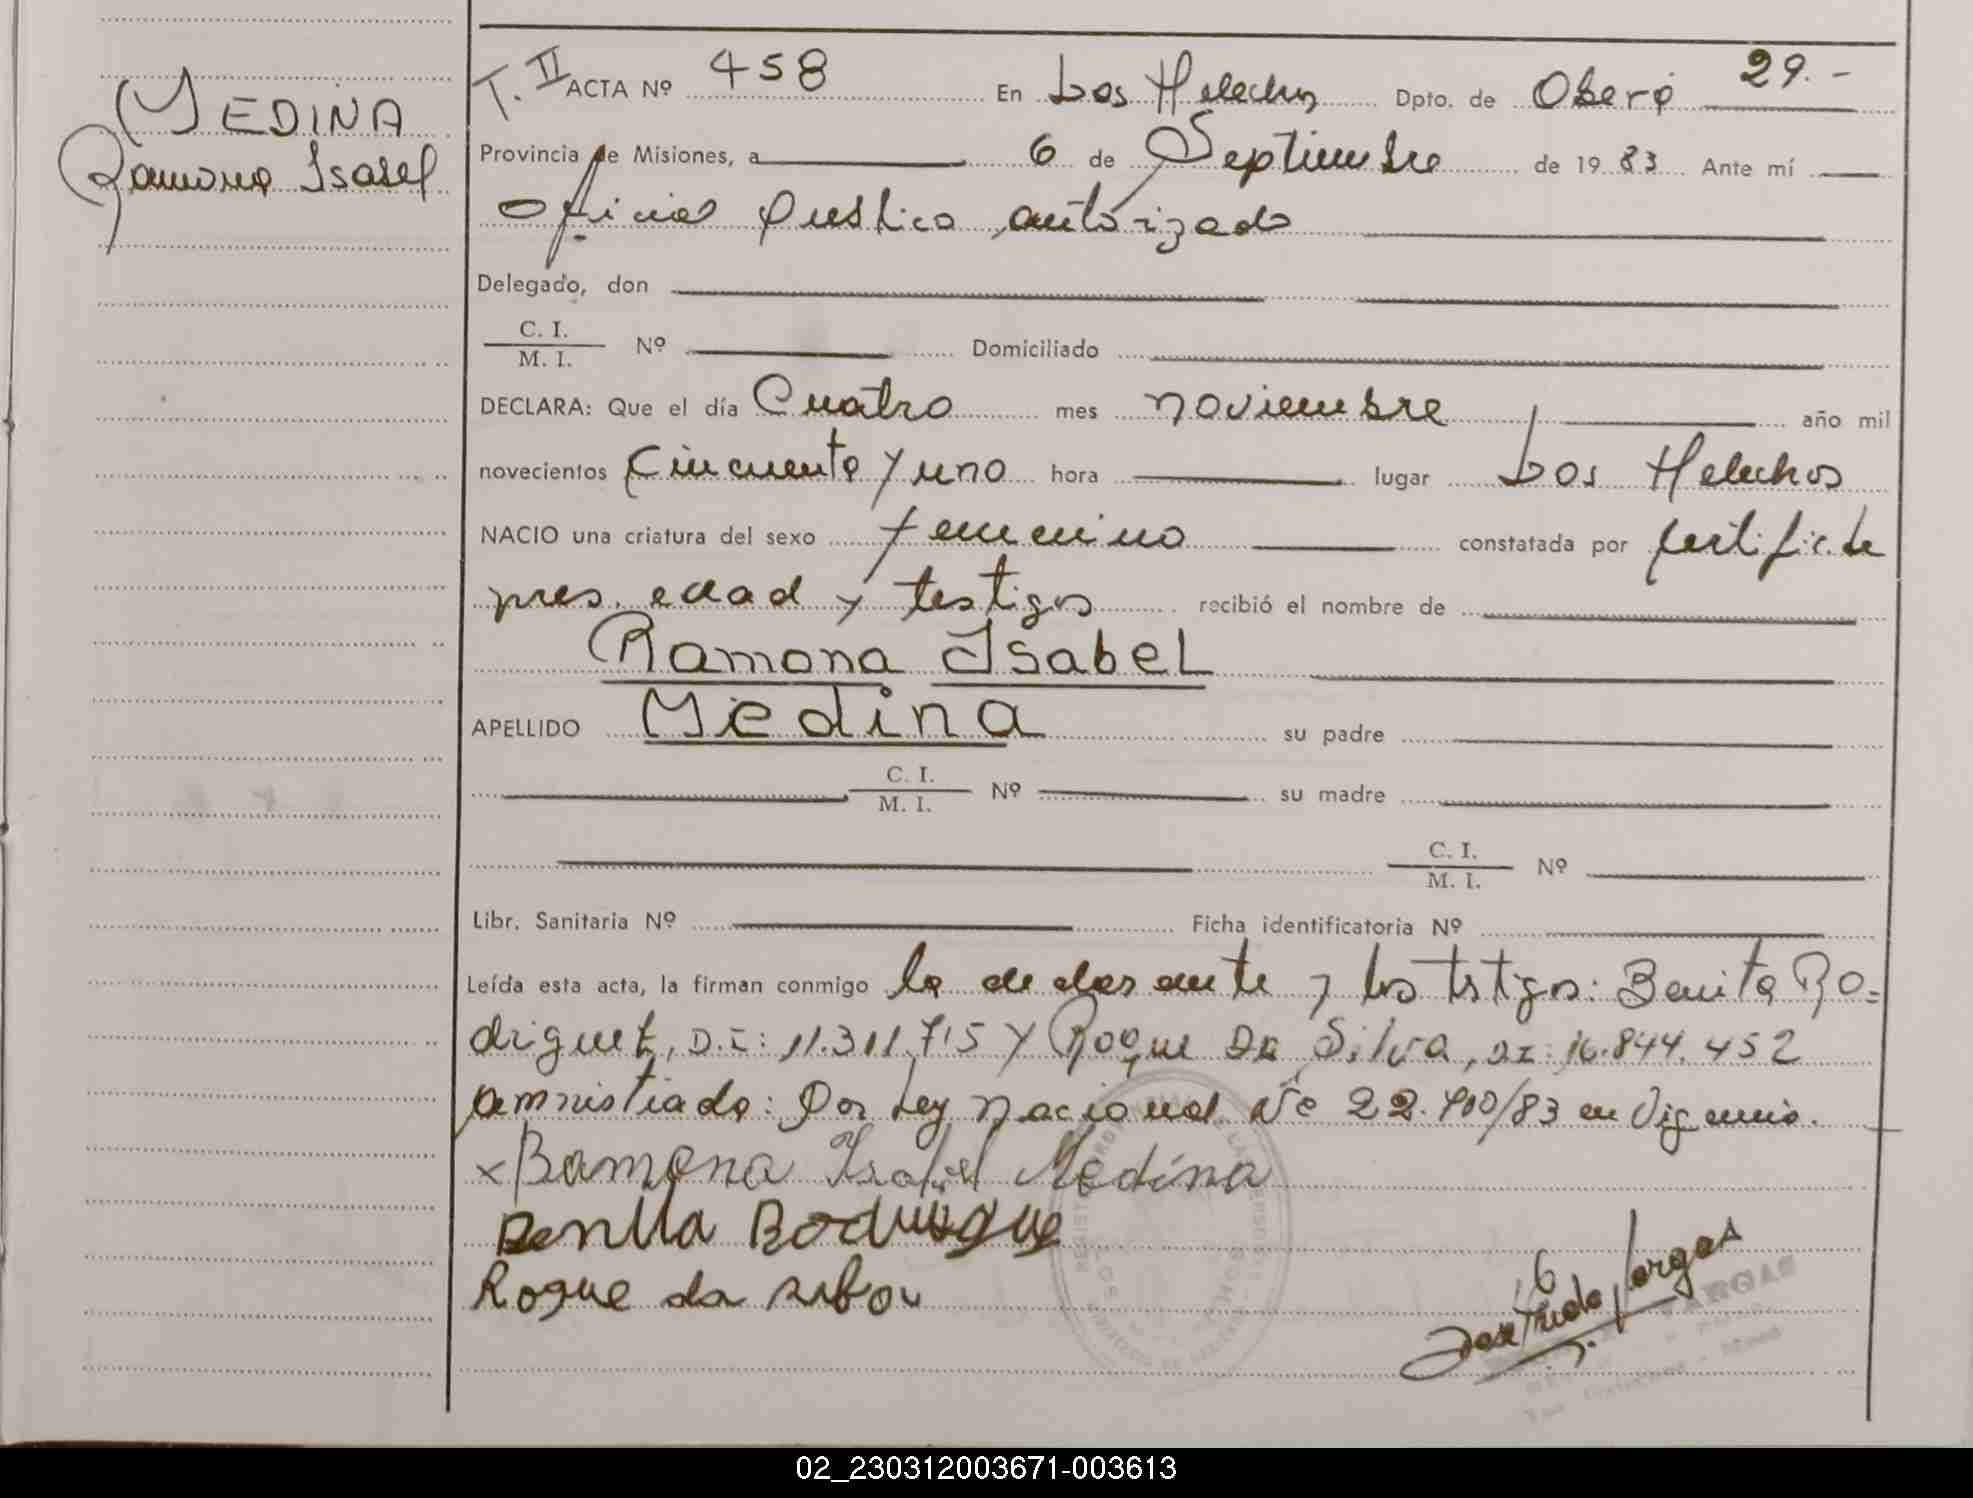 MEDINA
Ramona Isabel
T. II ACTA Nº 458 En Los Helechos Dpto. de Oberá 29.-
Provincia de Misiones, a 6 de Septiembre de 1983 Ante mí
Oficial Publico autorizado
Delegado, don
C. I.
M. I. Nº Domiciliado
DECLARA: Que el día Cuatro mes noviembre año mil
novecientos Cincuenta y uno hora lugar Los Helechos
NACIO una criatura del sexo femenino constatada por Certific. de
pres. edad y testigos recibió el nombre de
Ramona Isabel
APELLIDO Medina su padre
C. I.
M. I. Nº su madre
C. I.
M. I. Nº
Libr. Sanitaria Nº Ficha identificatoria Nº
Leída esta acta, la firman conmigo la declarante y los tstigos: Benita Ro=
driguez, D.I: 11.311.715 y Roque Da Silva, DI: 16.844.452
amnistiada: Por Ley Nacional Nº 22.700/83 en Vigencia.
x Ramona Isabel Medina
Roque da
VARGAS
02_230312003671-003613